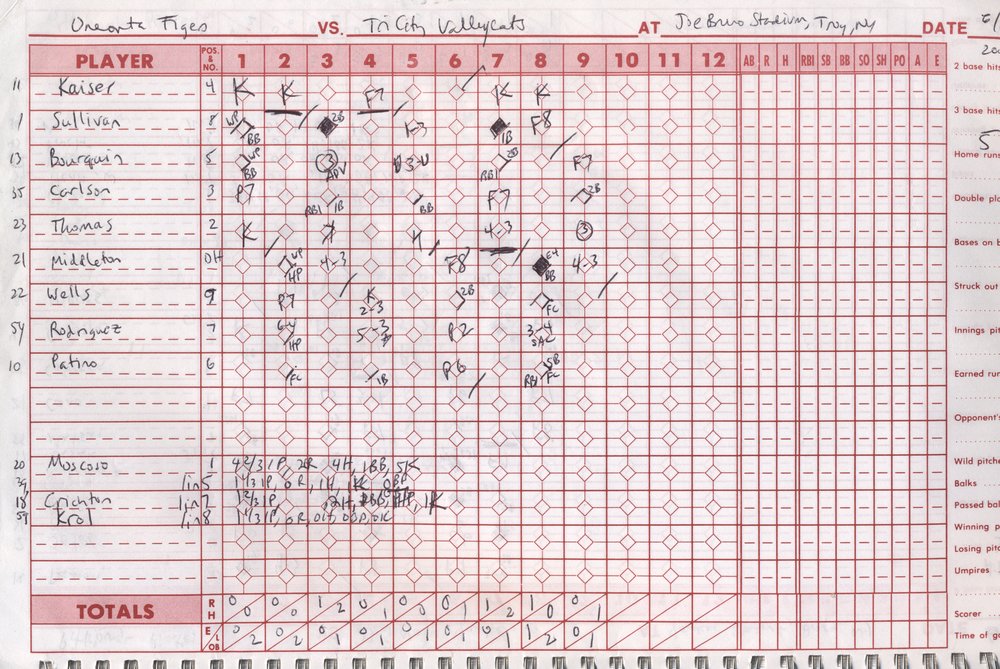 Oneonta Tigers VS. Tri City Valleycats AT Joe Bruno Stadium, Troy, NY DATE 6/
PLAYER POS. & NO. 1 2 3 4 5 6 7 8 9 10 11 12 AB R H RBI SB BB SO SH PO A E
2 base hits
11 Kaiser 4 K K F7 K K
3 base hits
1 Sullivan 8 WP BB 2B 1-3 1B F8
5
Home runs
13 Bourquin 5 WP BB 3 ADV 3-U RBI 2B F7
35 Carlson 3 P7 RBI 1B BB F7 2B
Double pla
23 Thomas 2 K K 4-3 3
Bases on b
21 Middleton DH WP HP 4-3 F8 E4 BB 4-3
22 Wells 9 P7 K 2-3 2B FC
Struck out
54 Rodriguez 7 6-4 HP 5-3 P2 3-4 SAC
Innings pit
10 Patino 6 FC 1B P6 SB RBI FC
Earned run
Opponent's
20 Moscoso 1 4 2/3 IP, 2R, 4H, 1BB, 5K
Wild pitche
1in5 1 1/3 IP, 0R, 1H, 1K
Balks
18 Crichton 1in7 1 2/3 IP, 2H, HP, 1K
Passed bal
Krol 1in8 1 1/3 IP, 0R, 0H, 0BB, 0K
Winning p
Losing pitc
Umpires
TOTALS R H 0 0 0 0 1 2 0 1 0 0 0 1 1 2 1 0 0 1
Scorer
E LOB 0 2 0 2 0 1 0 1 0 1 0 1 0 1 1 2 0 1
Time of ga